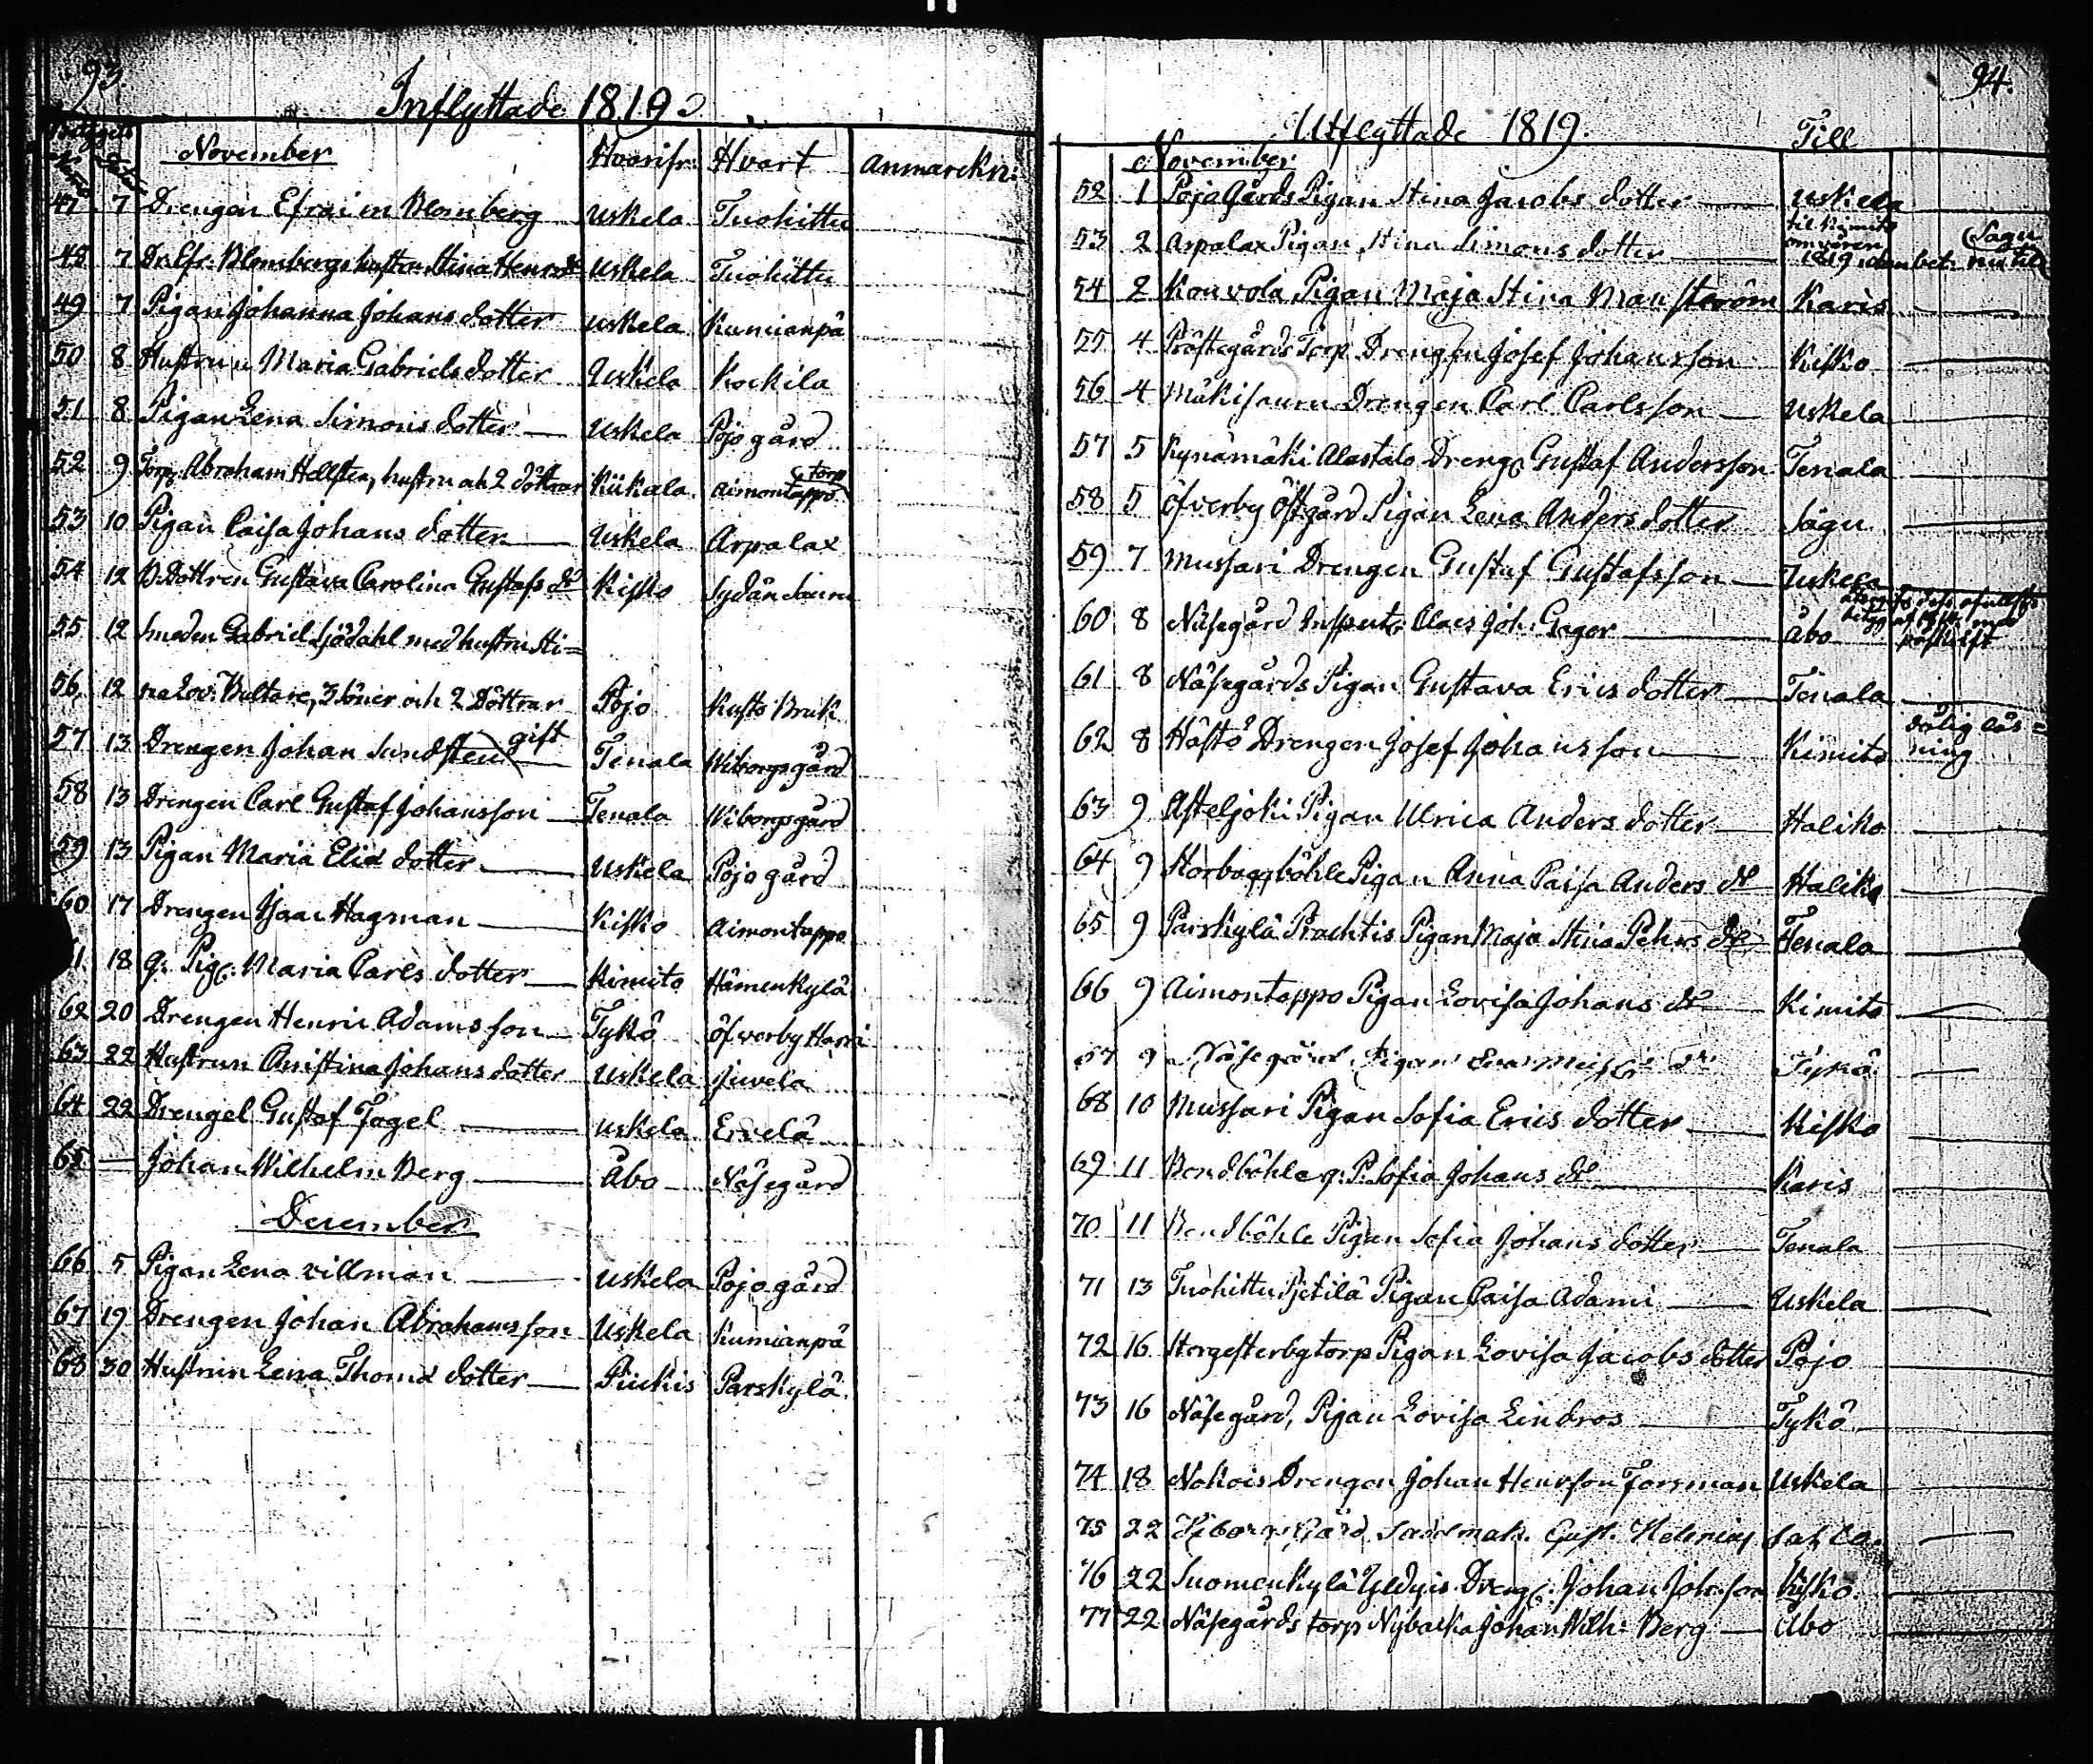 93.
Inflyttade 1819
November Hvarifr: Hvart anmärckn:
47 7 Drengen Efraim Blomberg Uskela Tuohittu
48 7 Dr. Efr. Blombergs hustru Stina Henr. dr Uskela Tuohittu
49 7 Pigan Johanna Johans dotter Uskela Kumianpä
50 8 Hustrun Maria Gabriels dotter Uskela Kockila
51 8 Pigan Lena Simons dotter Uskela Pojo gård
52 9 Torp. Abraham Hellsten, hustru och 2 döttrar Kiikala Aimontappo torp
53 10 Pigan Caisa Johans dotter Uskela Arpalax
54 12 B. Dottren Gustava Carolina Gustafs dr Kisko Sydän Sauru
55 12 Smeden Gabriel Sjödahl med hustru Sti=
56 12 na Lov. Bultare, 3 söner och 2 Döttrar Pojo Kusto Bruk
57 13 Drengen Johan Sundsten gift Tenala Wiborgsgård
58 13 Drengen Carl Gustaf Johansson Tenala Wiborgsgård
59 13 Pigan Maria Elia dotter Uskela Pojo gård
60 17 Drengen Isaac Hagman Kisko Aimontappo
61 18 g. Pig. Maria Carls dotter Kimito Hämenkylä
62 20 Drengen Henric Adamsson Tykö Öfverby Harri
63 22 Hustrun Christina Johans dotter Uskela Juvela
64 22 Drengel Gustaf Fagel Uskela Ervelä
65 — Johan Wilhelm Berg Åbo Näsegård
December
66 5 Pigan Lena Villman Uskela Pojo gård
67 19 Drengen Johan Abrahamsson Uskela Kumianpä
68 30 Hustrun Lena Thoma dotter Piickis Parskylä
94.
Utflyttade 1819. Till
November
52 1 Pojo Gårds Pigan Stina Jacobs dotter Uskela
53 2 Arpalax Pigan Stina Simons dotter til Kimito om våren 1819 utan bet. nu till Sagu
54 2 Kouvola Pigan Maja Stina Manström Karis
55 4 Prästegårds Torp. Drengen Josef Johansson Kisko
56 4 Mäkisauru Drengen Carl Carlsson Uskela
57 5 Kynämäki Alastalo Dreng. Gustaf Andersson Tenala
58 5 Öfverby Östgård Pigan Lena Anders dotter Sagu
59 7 Mussari Drengen Gustaf Gustafsson Uskela
60 8 Näsegård Inspect. Claes Joh. Geger Åbo
61 8 Näsegårds Pigan Gustava Erics dotter Tenala
62 8 Hästö Drengen Josef Johansson Kimito dålig läs=
ning
63 9 Asteljoki Pigan Ulrica Anders dotter Haliko
64 9 Storboggböhle Pigan Anna Caisa Anders dr Haliko
65 9 Parskylä Prachtis Pigan Maja Stina Pehrs dr Tenala
66 9 Aimontappo Pigan Lovisa Johans dr Kimito
67 9 Näsegård Pigan Eva dr Tykö
68 10 Mussari Pigan Sofia Erics dotter Kisko
69 11 Bondböhle g. P. Sofia Johans dr Karis
70 11 Bondböhle Pigan Sofia Johans dotter Tenala
71 13 Tuohittu Pjetilä Pigan Caisa Adami Uskela
72 16 Storgesterbytorp Pigan Lovisa Jacobs dotter Pojo
73 16 Näsegård, Pigan Lovisa Lindros Tykö
74 18 Nokois Drengen Johan Henrsson Forsman Uskela
75 22 Gård Sadelmak. Gust.
76 22 Suomenkylä Dreng. Johan Joh:son Kisko
77 22 Näsegårds torp Nybacka Johan Wilh: Berg Åbo